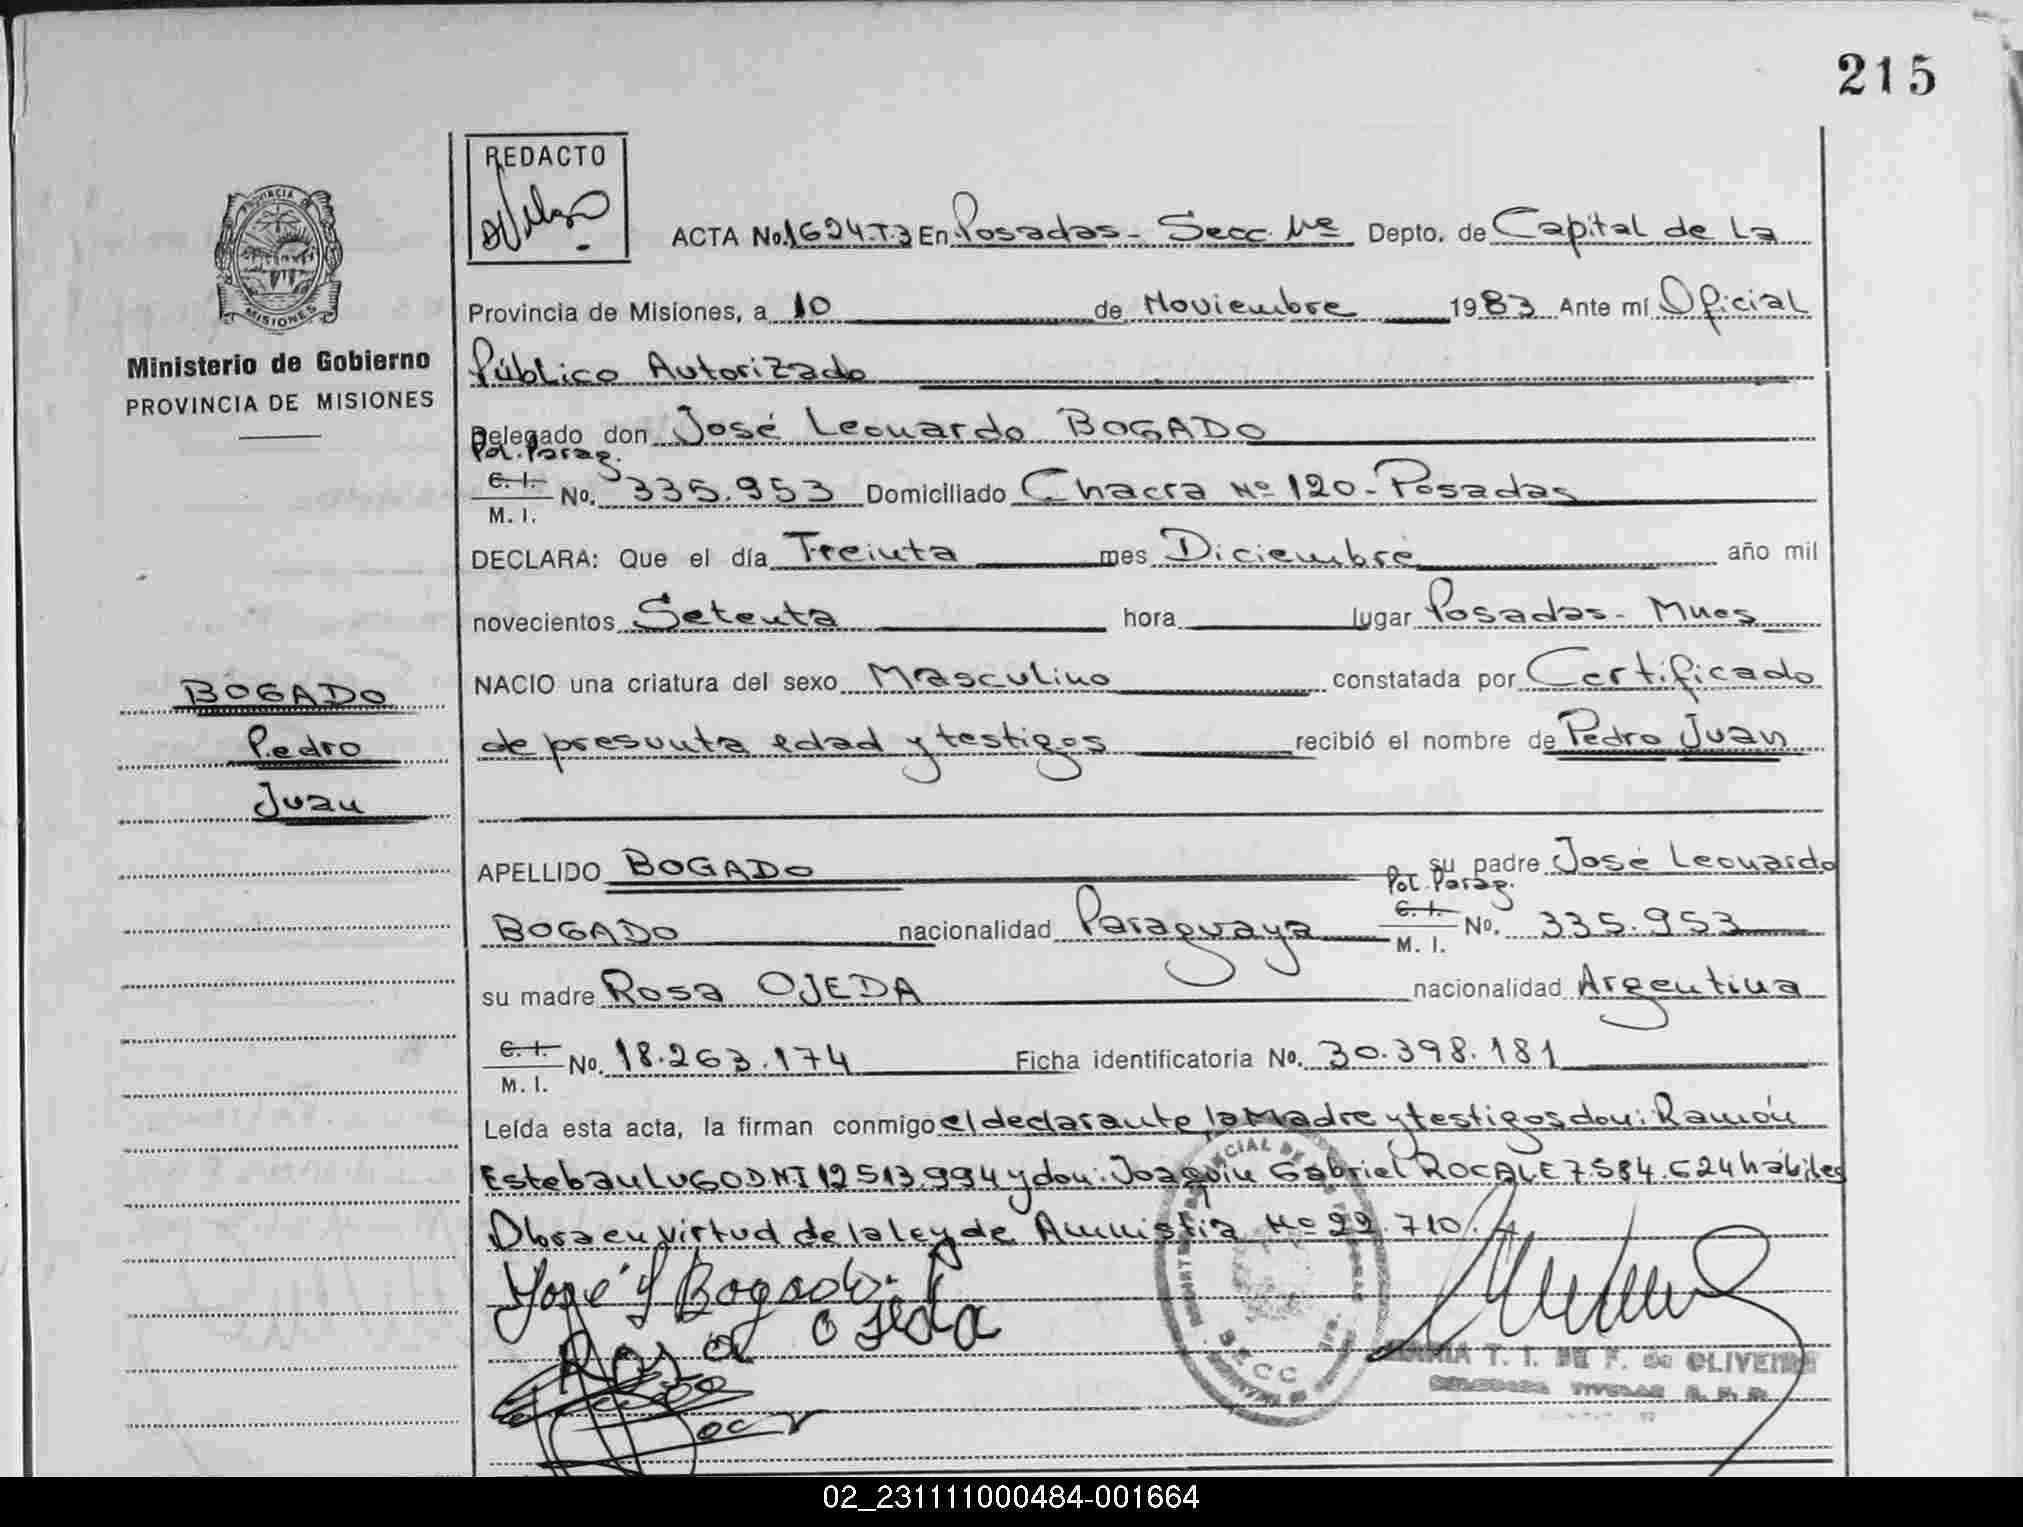 215
REDACTO
ACTA No. 1624.T.3 En Posadas - Secc. 1ª Depto. de Capital de La
Provincia de Misiones, a 10 de Noviembre 1983 Ante mí Oficial
Público Autorizado
Delegado don José Leonardo BOGADO
Pol. Parag.
C. I. M. I. No. 335.953 Domiciliado Chacra Nº 120 - Posadas
DECLARA: Que el día Treinta mes Diciembre año mil
novecientos Setenta hora lugar Posadas - Mnes
NACIO una criatura del sexo Masculino constatada por Certificado
de presunta edad y testigos recibió el nombre de Pedro Juan
APELLIDO BOGADO su padre José Leonardo
Pol. Parag.
BOGADO nacionalidad Paraguaya C. I. M. I. No. 335.953
su madre Rosa OJEDA nacionalidad Argentina
C. I. M. I. No. 18.263.174 Ficha identificatoria No. 30.398.181
Leída esta acta, la firman conmigo el declarante, la Madre y testigos don: Ramón
Esteban LUGO D.N.I 12.513.994 y don: Joaquín Gabriel ROCALE 7.584.624 hábiles
Obra en virtud de la ley de Amnistia Nº 22.710.
José L Bogado
Rosa ojeda
MARIA T. I. DE F. de OLIVEIRA
SECC
PROVINCIA
MISIONES
Ministerio de Gobierno
PROVINCIA DE MISIONES
BOGADO
Pedro
Juan
02_231111000484-001664